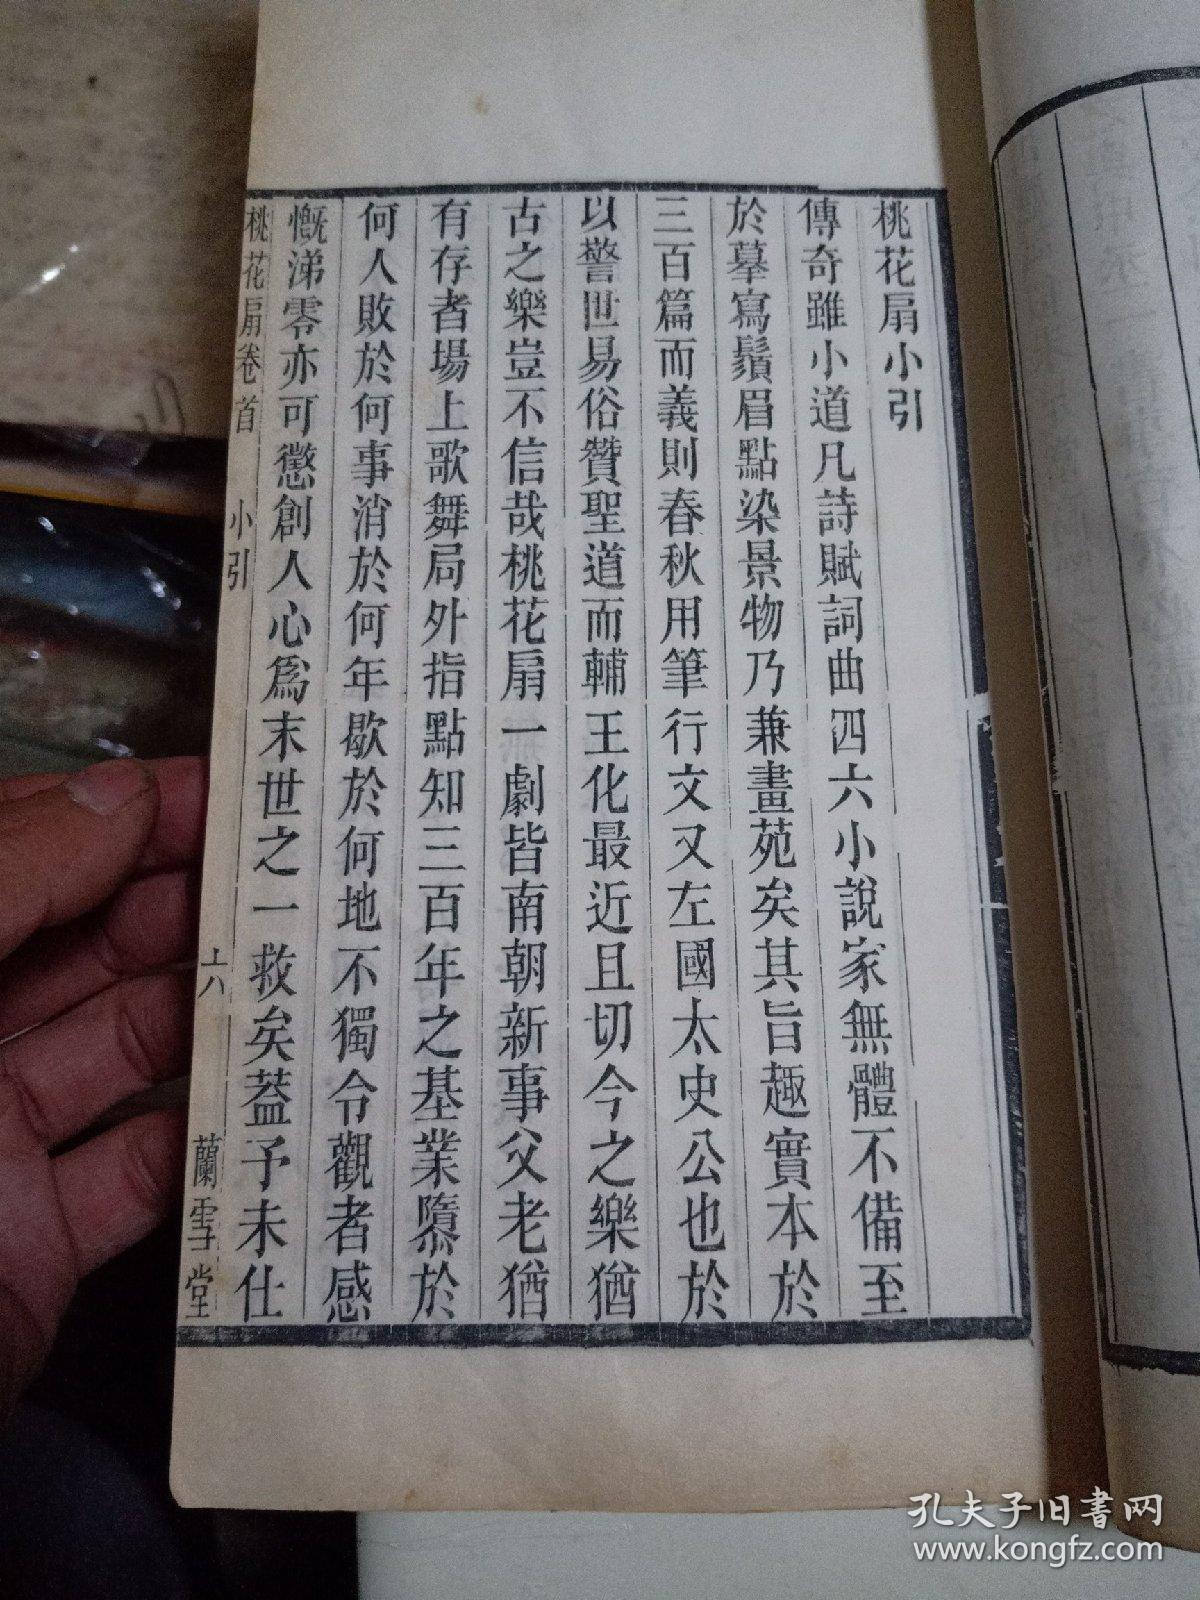 桃花扇小引
傳奇雖小道凡詩賦詞曲四六小說家無體不備至
於摹寫鬚眉點染景物乃兼畫苑矣其旨趣實本於
三百篇而義則春秋用筆行文又左國太史公也於
以警世易俗贊聖道而輔王化最近且切今之樂猶
古之樂豈不信哉桃花扇一劇皆南朝新事父老猶
有存者場上歌舞局外指點知三百年之基業隳於
何人敗於何事消於何年歇於何地不獨令觀者感
慨涕零亦可懲創人心為末世之一救矣蓋予未仕
桃花扇卷首 小引 六 蘭雪堂
孔夫子旧书网
www.kongfz.com